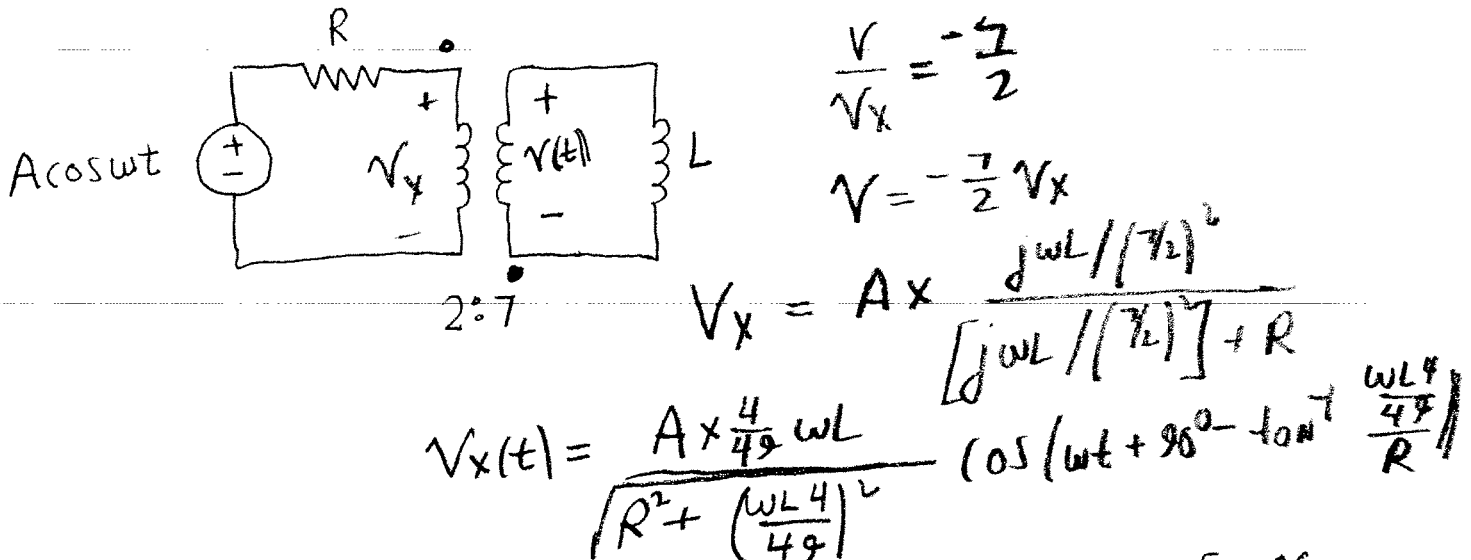 R
A cos ωt
+
−
+
Vx
−
+
v(t)
−
L
2:7
V/Vx = -7/2
V = -7/2 Vx
Vx = A x jωL/(7/2)² / [jωL/(7/2)²] + R
Vx(t) = A x 4/49 ωL / √R² + (ωL4/49)² cos(ωt + 90° - tan⁻¹ ωL4/49/R)